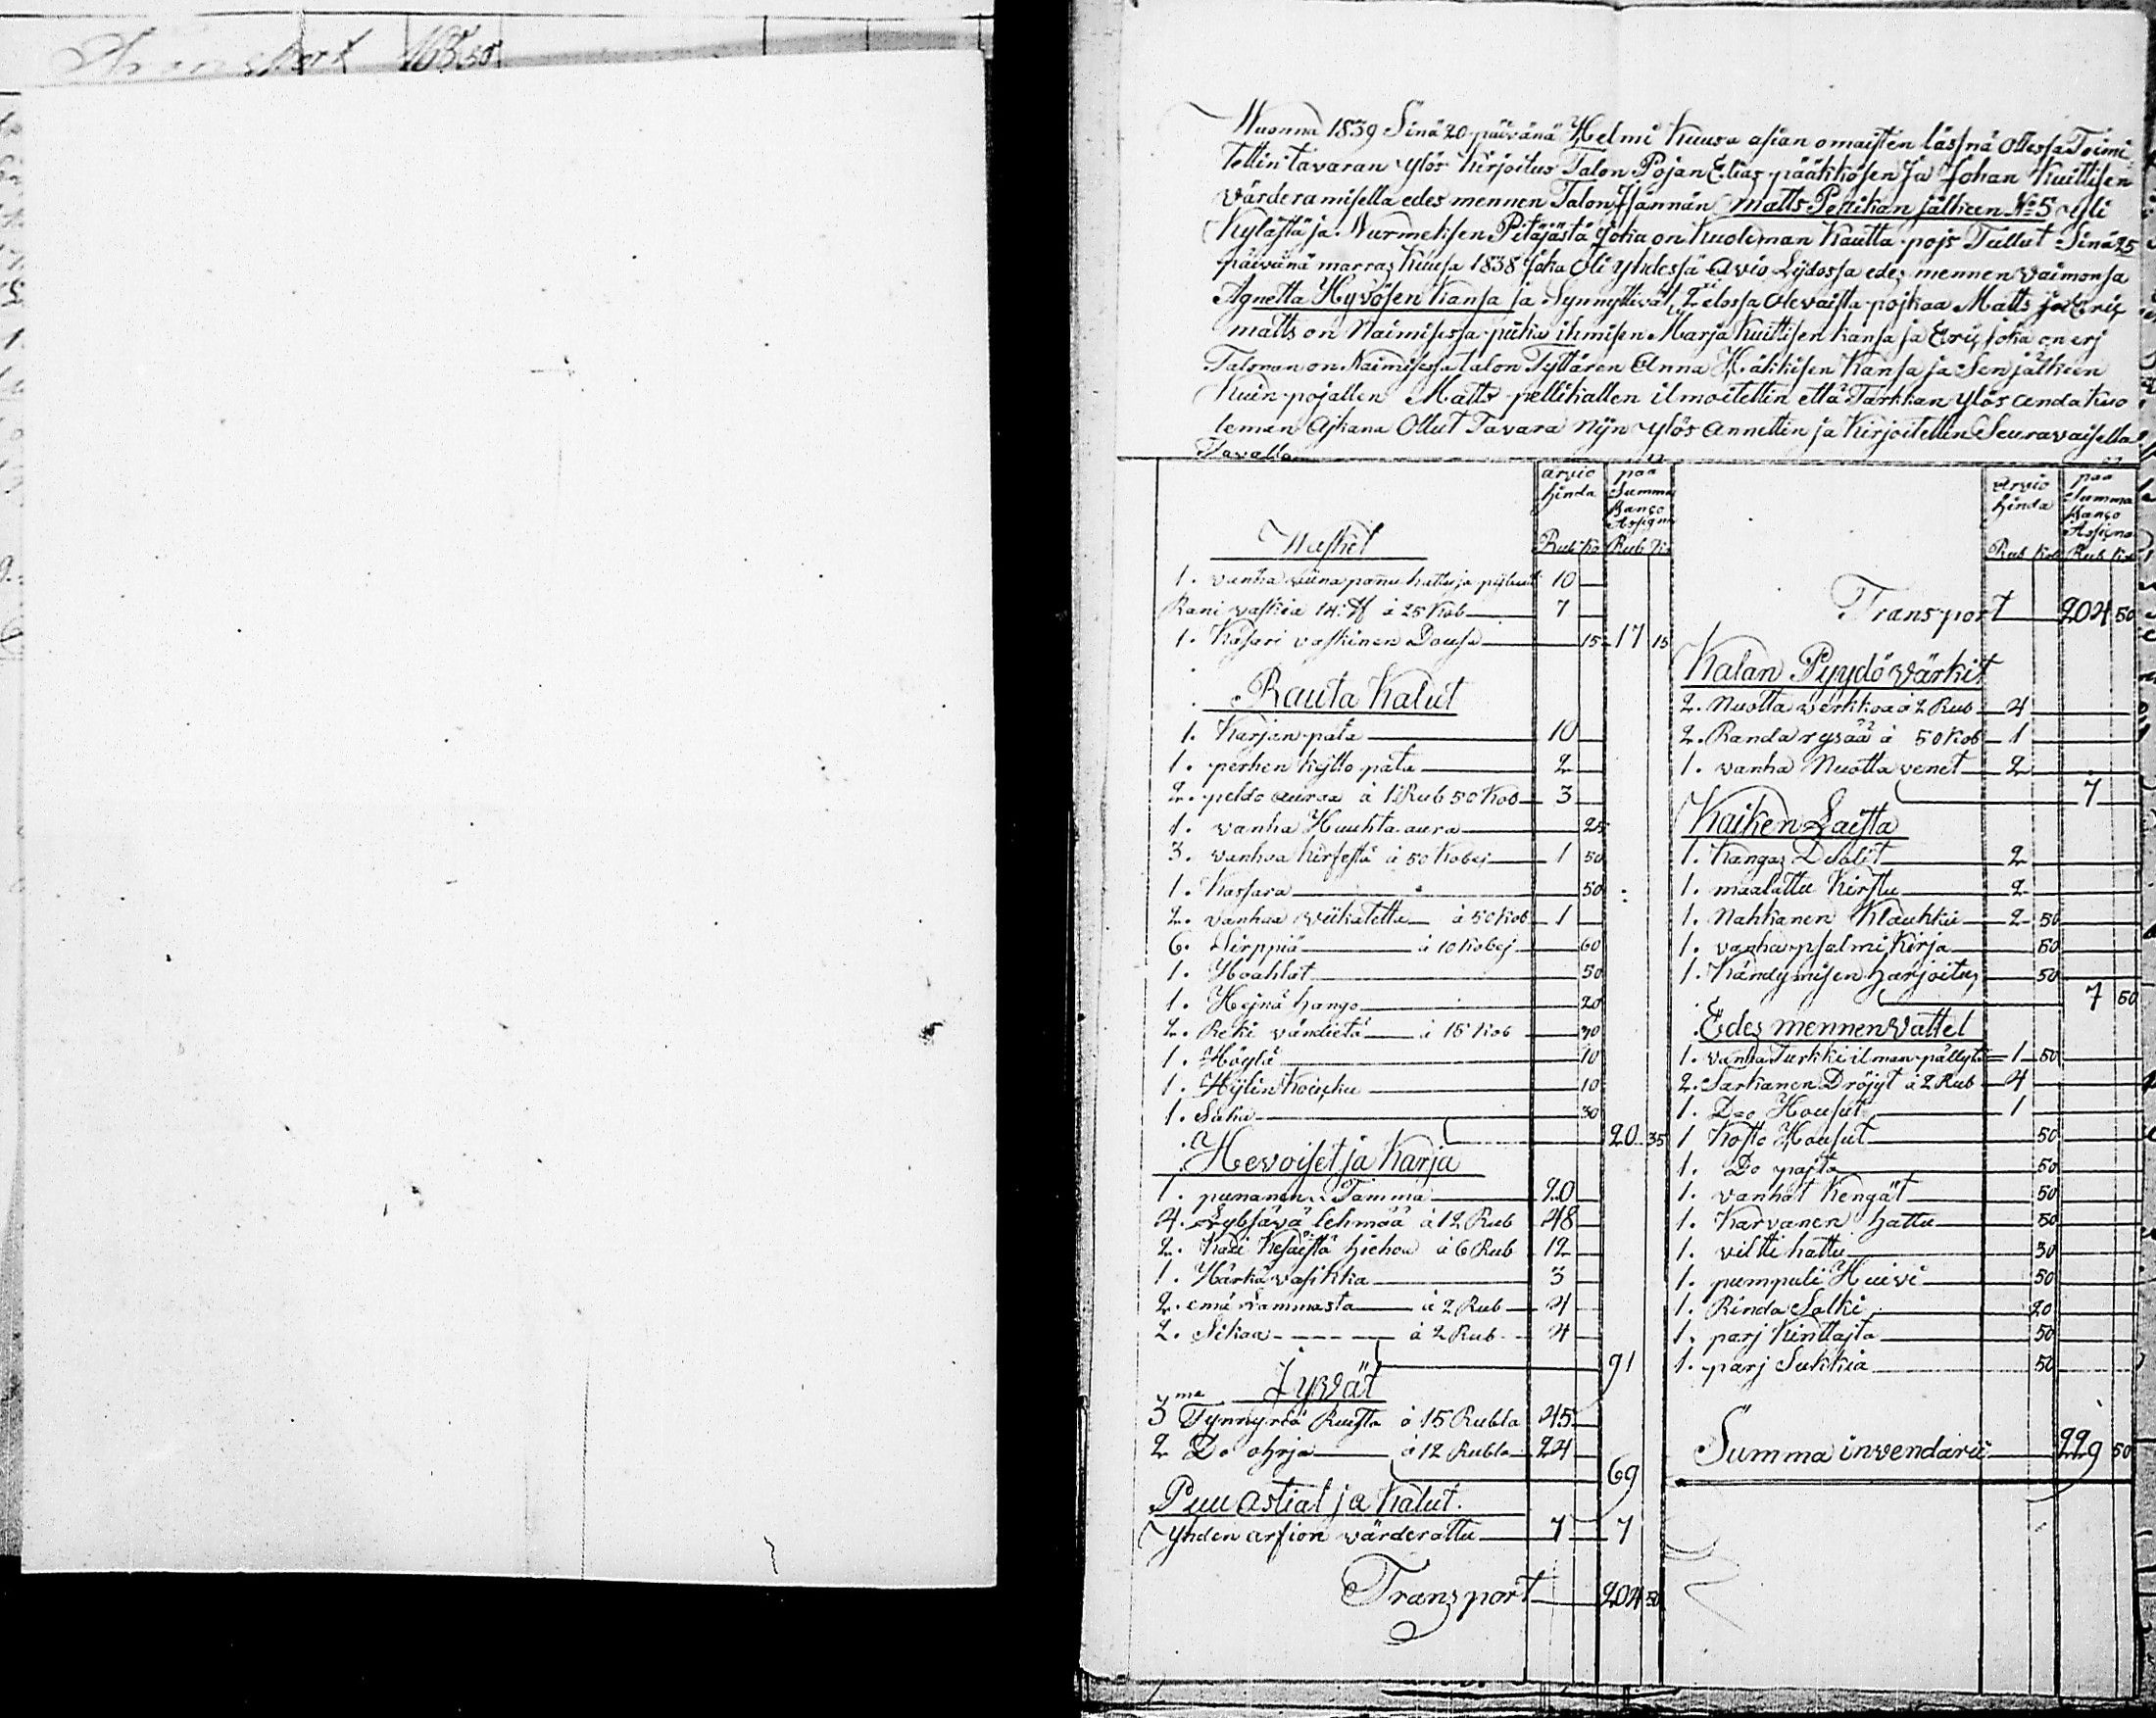 Transport 165 50
Wuonna 1839 Sinä 20 päivänä Helmi Kuusa asian omaisten läsnä ollessa Toimi
tettin tavaran ylös kirjoitus Talon Pojan Elias pääkkösen Ja Johan Kuittisen
värderamisella edes mennen Talon Isännän matts Pellikan jälkeen No 5 Yli
Kylästä ja Nurmeksen Pitäjästä joka on kuoleman kautta pojs Tullut Sinä 25
päivänä marras kuusa 1838 joka oli yhdessä avio Lijdossa edes mennen vaimonsa
Agnetta Hyvösen kansa ja Synnyttivät 2 elossa olevaista pojkaa Matts ja Eric
matts on Naimisessa piika ihmisen Marja Kuittisen kansa ja Eric joka on erj
Talonan on Naimisessa talon Tyttären Anna Häkkisen kansa ja Sen jälkeen
kuin pojallen Matts pellikallen ilmoitettin että Tarkkan ylös anda kuo
leman Ajkana Ollut Tavara nijn ylös annettin ja kirjoitettin Seuravaisella
Tavalla
arvio hinda Rub Ko
pää Summa Banco Assigna Rub Ko
Wasket
1. vanha viina pannu hattu ja 10
Rani vaskia 14 ℔ à 25 Kob 7
1. Kasari vaskinen Dousa 15 17 15
Rauta kalut
1. Karjan pata 10
1. perhen kejtto pata 2
2. peldo auraa à 1 Rub 50 Kob 3
1. vanha Huuhta aura 25
3. vanhoa kirfestä à 50 Kobej 1 50
1. Kassara 50
2. vanhaa viikatetta à 50 Kob 1
6. Sirppiä à 10 Kobej 60
1. Hoahlat 50
1. Hejnä hango 20
2. Reki vändietä à 15 Kob 30
1. Höylä 10
1. Hijlin koukku 10
1. Saha 30
20 35
Hevoiset ja Karja
1. punanen Tamma 20
4. Lybsävä lehmää à 12 Rub 48
2. Kaxi kesäistä hiehoa à 6 Rub 12
1. Härkä vasikka 3
2. emä Lammasta à 2 Rub 4
2. Sikaa à 2 Rub 4
91
Jyvät
3 me Tynnyriä Ruista à 15 Rubla 45
2 Do ohrja à 12 Rubla 24
69
Puu astiat ja kalut
Yhden arfion värderattu 7 7
Transport 204 50
Arvio hinda Rub Kob
pää Summa Banco Assigna Rub Ko
Transport 204 50
Kalan Pyydö värkit
2. Nuotta verkkoa à 2 Rub 4
2. Randa rysää à 50 Kob 1
1. vanha Nuotta venet 2
7
Kaiken Laista
1. Kangas 2
1. maalattu Kirstu 2
1. Nahkanen Klaukku 2 50
1. vanha psalmi kirja 50
1. Kändymisen harjoitus 50
7 50
Edes mennen vattet
1. vanha Turkki ilman pällystä 1 50
2. Sarkanen Dröijyt à 2 Rub 4
1. D=o Housut 1
1 Kosto Housut 50
1. Do pajta 50
1. vanhat Kengät 50
1. Karvanen hattu 50
1. viltti hattu 30
1. pumpuli Huivi 50
1. Rinda Solki 20
1. parj kinttajta 50
1. parj Sukkia 50
Summa invendarii 229 50